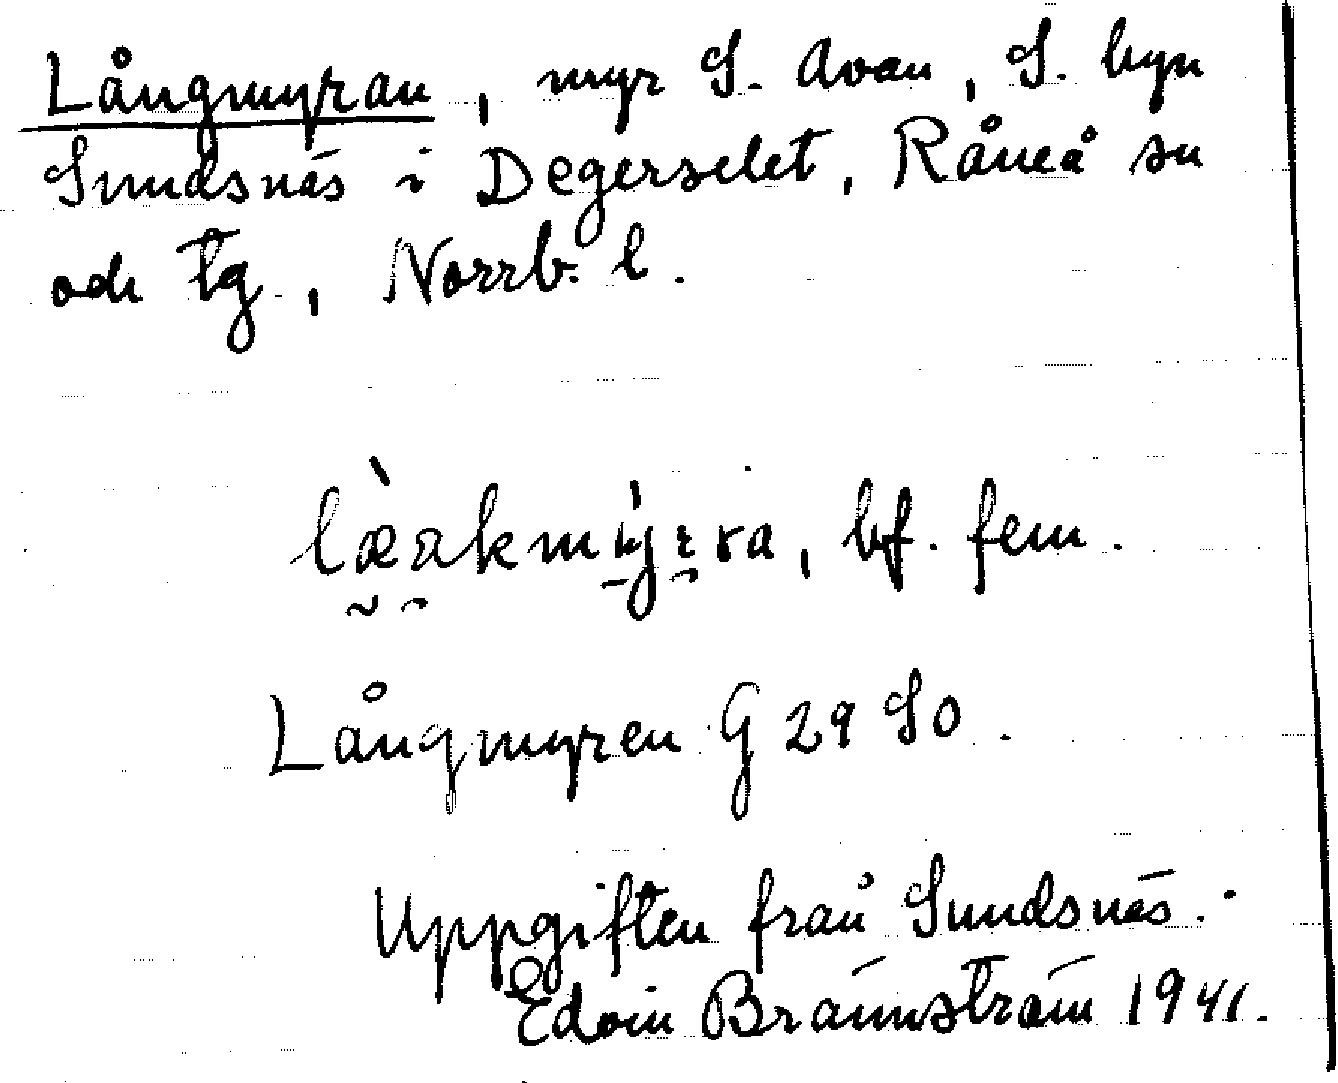 Långmyran, myr S. Avan, S. byn
Sundsnäs i Degerselet, Råneå sn
och tg, Norrb. l.
læ̀akmyrra, bf. fem.
Långmyren G 29 SO.
Uppgiften från Sundsnäs.
Edvin Brännström 1941.